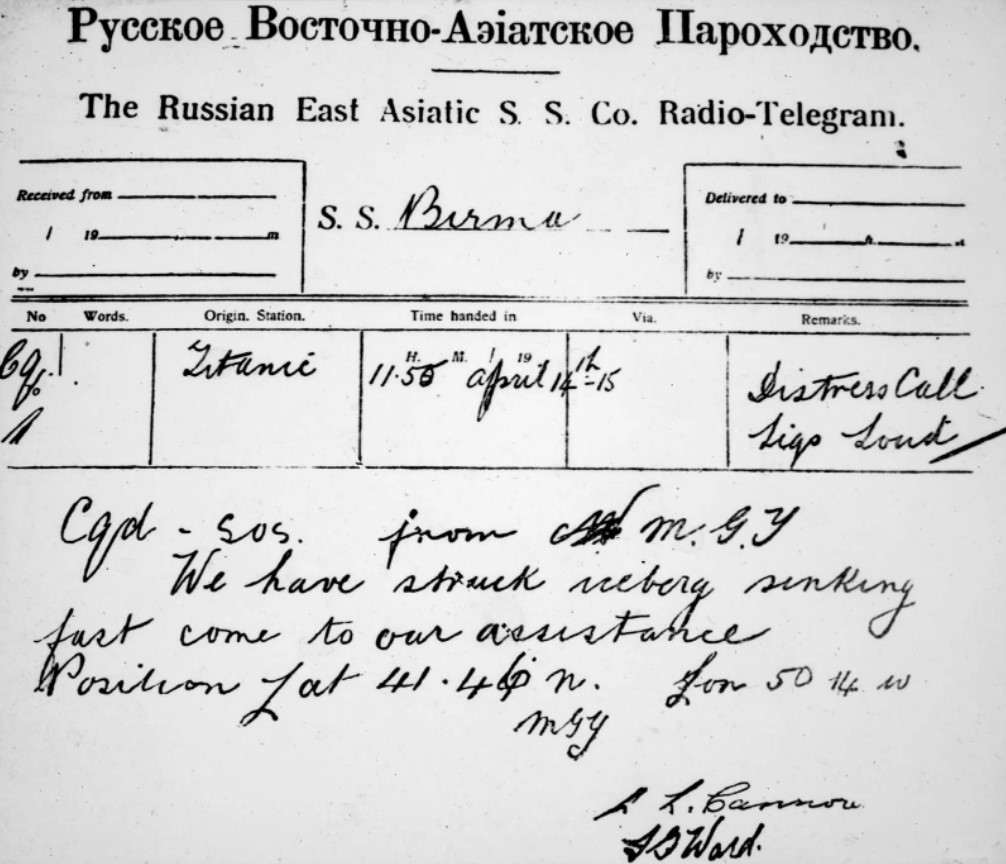 Русское Восточно-Азіатское Пароходство.
The Russian East Asiatic S. S. Co. Radio-Telegram.
Received from
/ 19 m
by
S. S. Birma
Delivered to
/ 19
by
No Words. Origin. Station. Time handed in Via. Remarks.
H. M. / 19
Cqd. 1 Titanic 11.50 April 14th-15 Distress Call
Sigs Loud
Cqd - SOS. from M.G.Y
We have struck iceberg sinking
fast come to our assistance
Position Lat 41.46 n. Lon 50 14 w
MGY
L. Cannon
Ward.